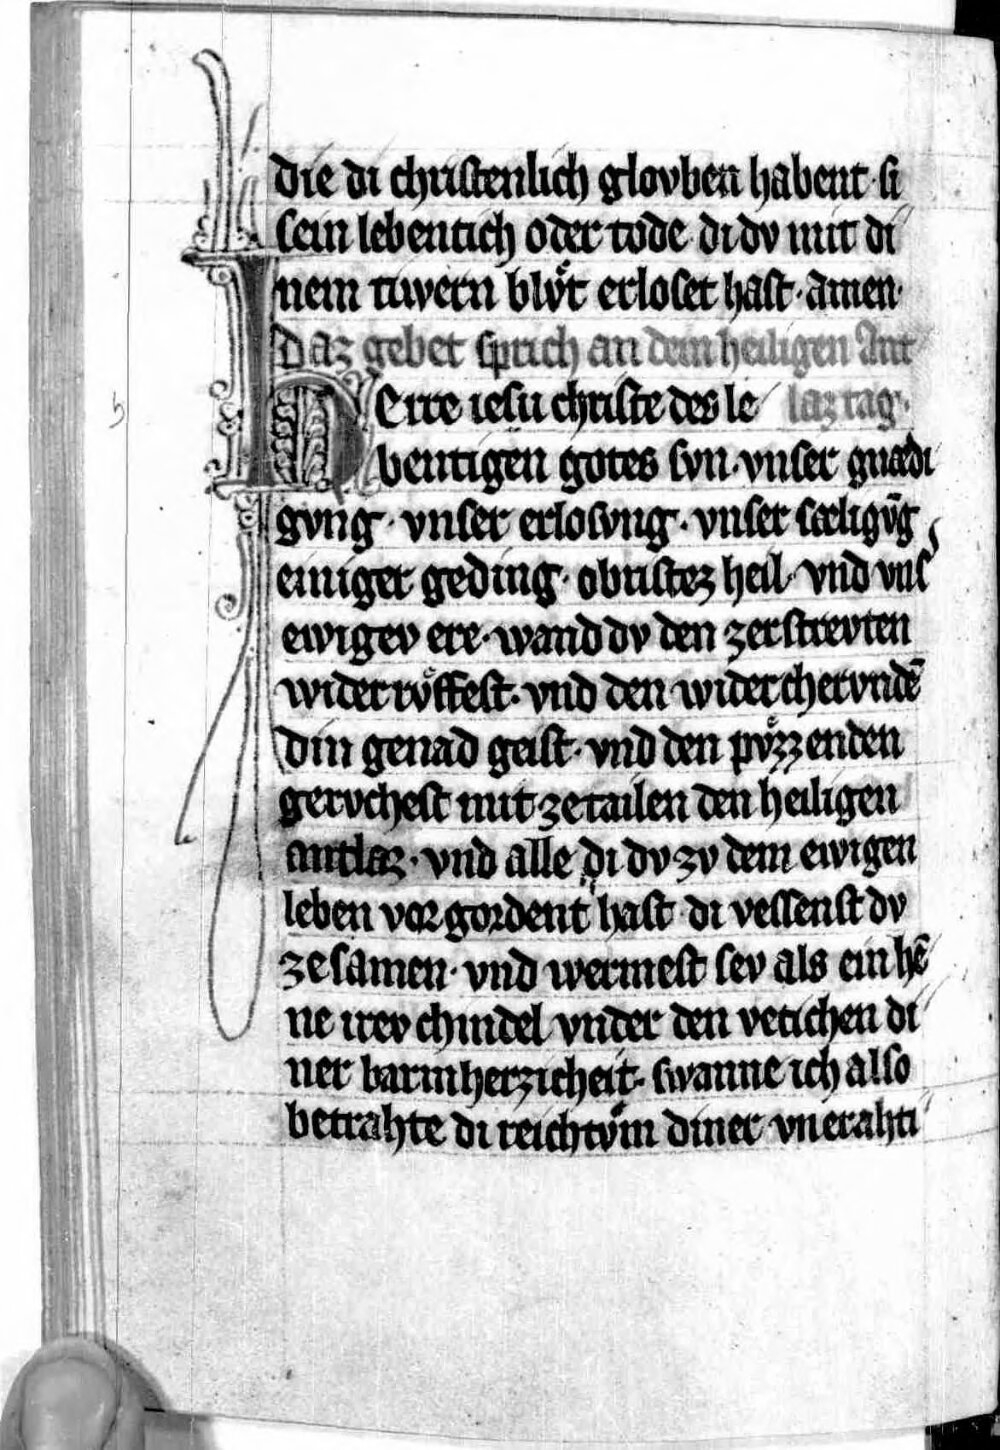 die di christenlich glovben habent · si
sein lebentich oder tode · di dv mit di
nem tiwern blv̊t erloset hast · Amen ·
Daz gebet sprich an dem heiligen Ant
Herre iesu christe des le laz tag ·
bentigen gotes svn · vnser gnædi
gvng · vnser erlosvng · vnser sæligv̄g
einiger geding · obristez heil · vnd vns
ewigev ere · wand dv den zerstrevten
wider rv̊ffest · vnd den widercherundē
din genad geist · vnd den pv̊zzenden
gervchest mit zetailen den heiligen
antlaz · vnd alle di dv zv dem ewigen
leben vor gordent hast · di vessenst dv
zesamen · vnd wermest sev als ein hē
ne irev chindel vnder den vetichen di
ner barmherzicheit · swanne ich also
betrahte di reichtv̊m diner vnerahti